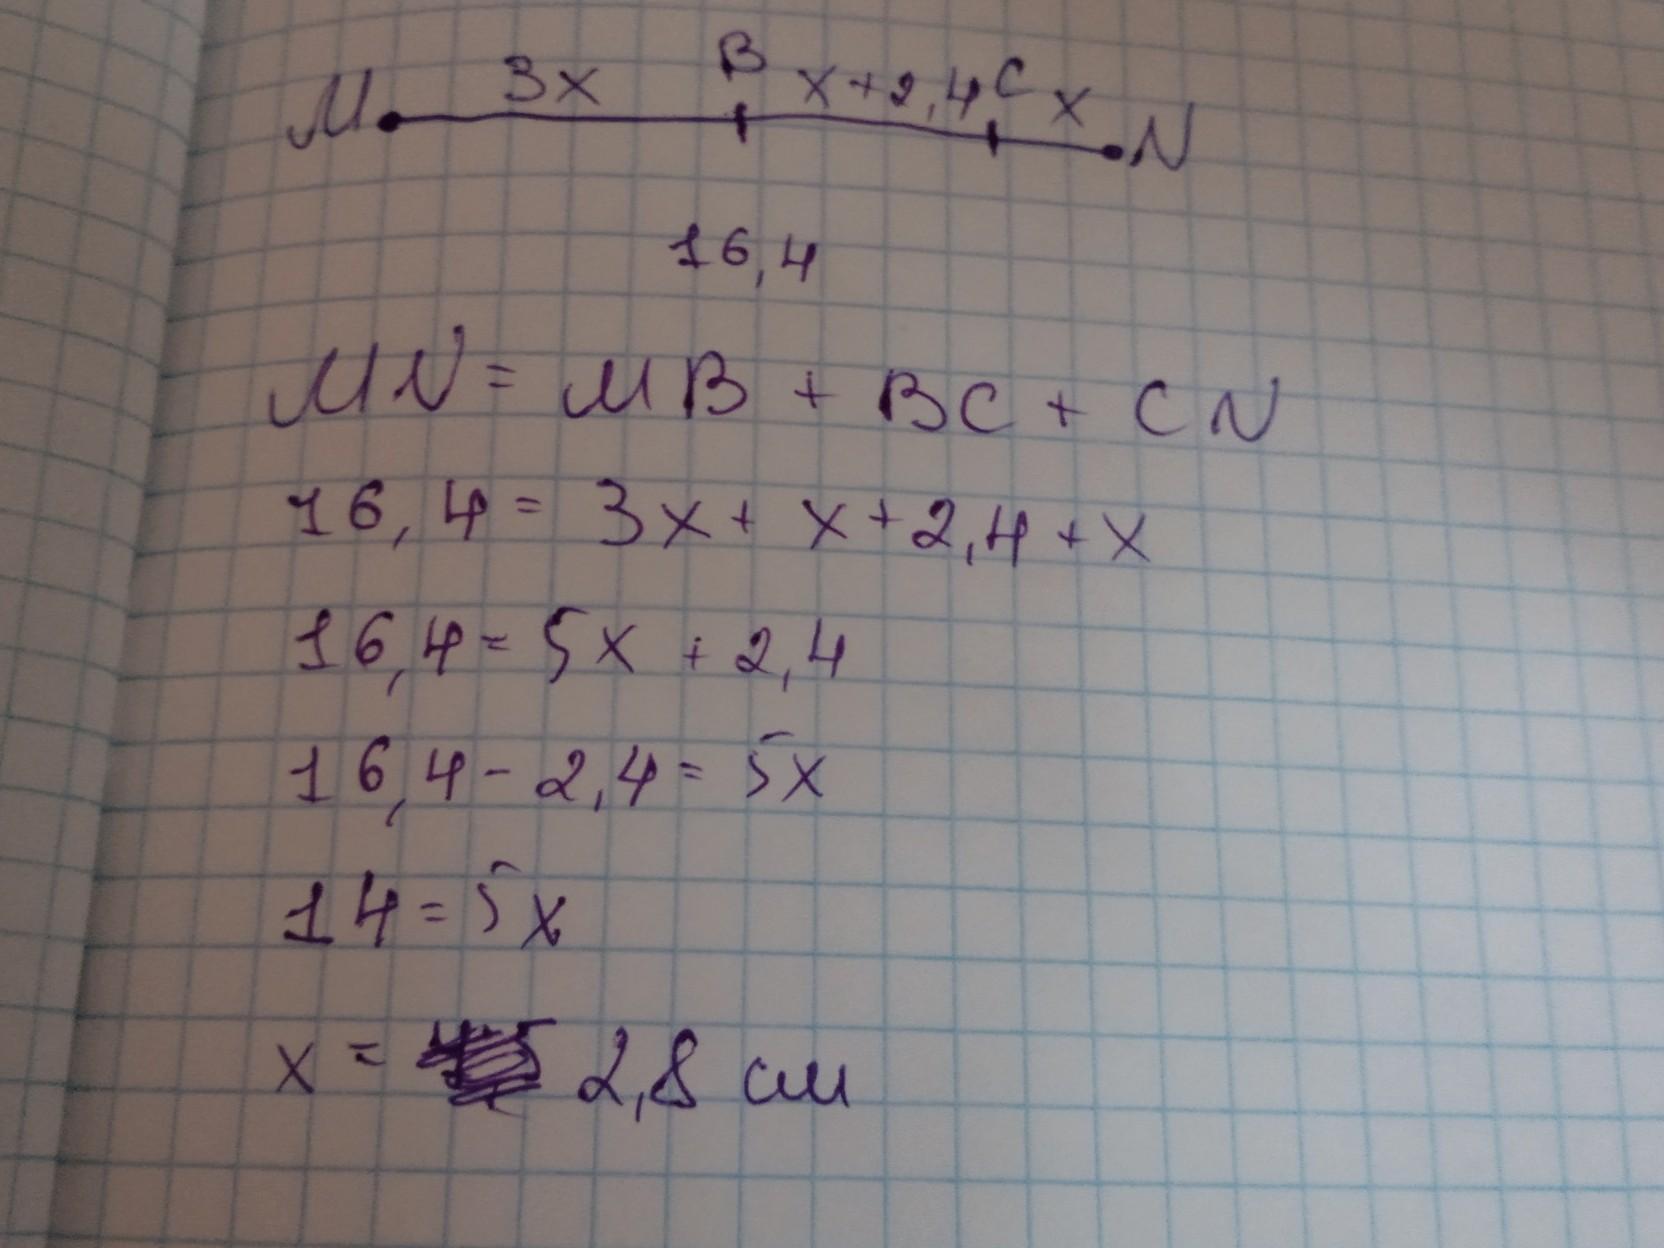 M 3x B x+2,4 C x N
16,4
MN = MB + BC + CN
16,4 = 3x + x + 2,4 + x
16,4 = 5x + 2,4
16,4 - 2,4 = 5x
14 = 5x
x = 2,8 см